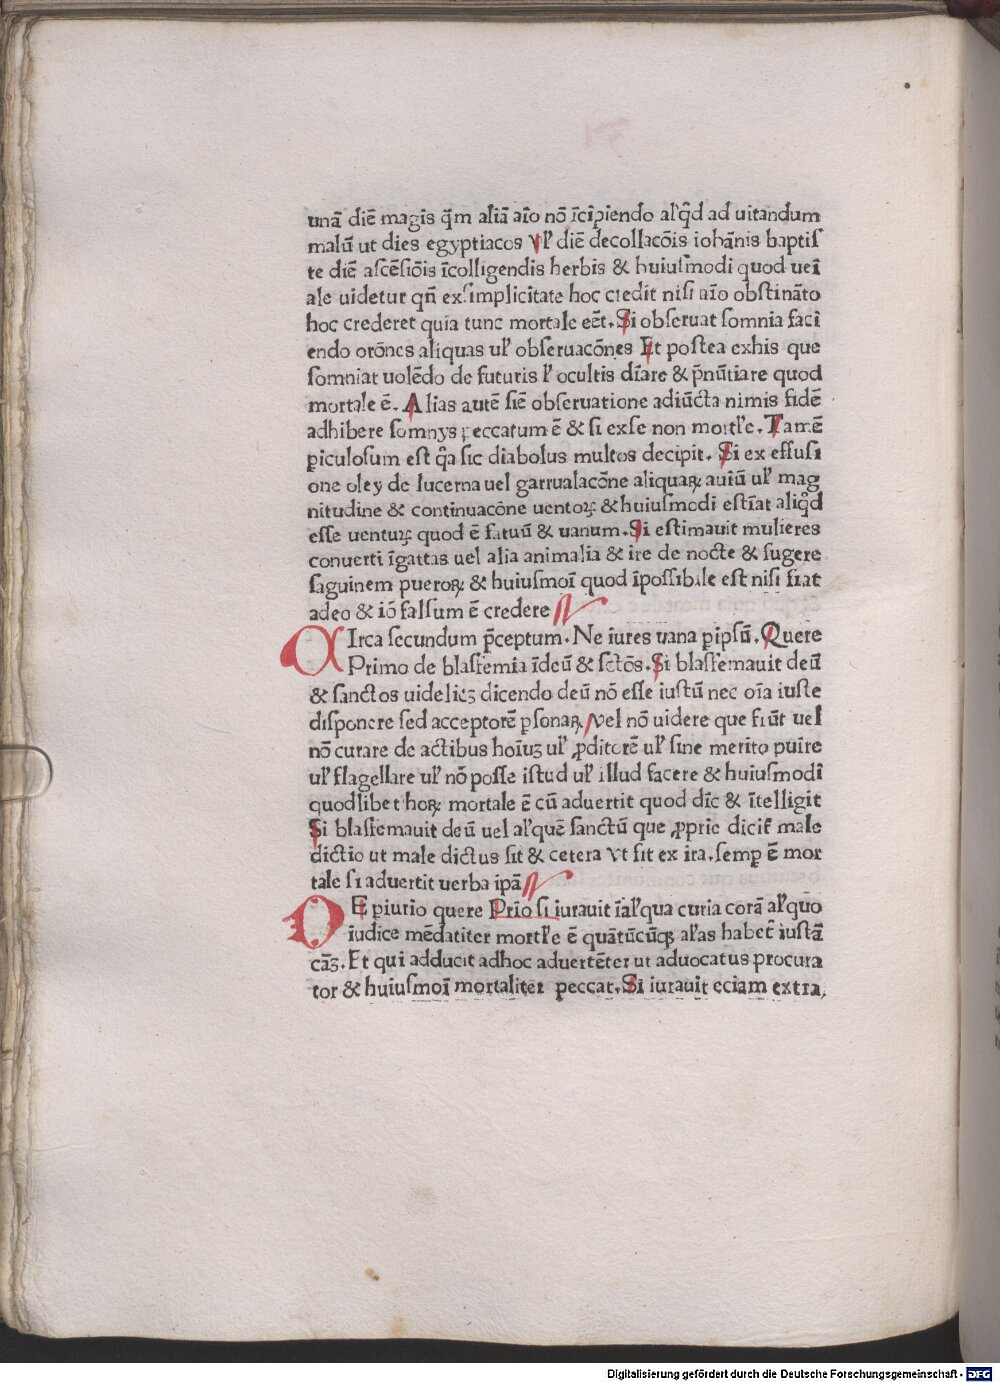 unā diē magis q̄m aliā aīo nō īcipiendo al'q̄d ad uitandum
malū ut dies egyptiacos Vl' diē decollacōis iohānis baptiſ
te diē aſcēſiōis īcolligendis herbis & huiuſmodi quod ueī
ale uidetur qn̄ exſimplicitate hoc credit niſi aīo obſtināto
hoc crederet quia tunc mortale eēt. Si obſeruat ſomnia faci
endo orōnes aliquas ul' obſeruacōnes Et poſtea exhis que
ſomniat uolēdo de futuris l' ocultis dīare & p̄nūtiare quod
mortale ē. Alias autē ſiē obſeruatione adiūcta nimis fidē
adhibere ſomnys peccatum ē & ſi exſe non mortl'e. Tamē
piculoſum eſt q̄a ſic diabolus multos decipit. Si ex effuſi
one oley de lucerna uel garrualacōne aliquaꝝ auiū ul' mag
nitudine & continuacōne uentoꝝ & huiuſmodi eſtīat aliq̄d
eſſe uentuꝝ quod ē fatuū & uanum. Si eſtimauit mulieres
conuerti īgattas uel alia animalia & ire de nocte & ſugere
ſaguinem pueroꝝ & huiuſmoī quod īpoſſibile eſt niſi fiat
adeo & iō falſum ē credere
CIrca ſecundum p̄ceptum. Ne iures uana ꝑipſū. Quere
Primo de blaſfemia īdeū & ſctōs. Si blaſfemauit deū
& ſanctos uidelicꝫ dicendo deū nō eſſe iuſtū nec oīa iuſte
diſponere ſed acceptorē ꝑſonaꝝ vel nō uidere que fiūt uel
nō curare de actibus hoīuꝫ ul' ꝓditorē ul' ſine merito puīre
ul' flagellare ul' nō poſſe iſtud ul' illud facere & huiuſmodi
quodlibet hoꝝ mortale ē cū aduertit quod dīc & ītelligit
Si blaſfemauit deū uel al'quē ſanctū que ꝓprie dicit̄ male
dictio ut male dictus ſit & cetera Vt ſit ex ira. ſemꝑ ē mor
tale ſi aduertit uerba ipā
DE piurio quere Prīo ſi iurauit īal'qua curia corā al'quo
iudice mēdatiter mortl'e ē quātūcūqꝫ al'as habet̄ iuſtā
cāꝫ. Et qui adducit adhoc aduertēter ut aduocatus procura
tor & huiuſmoī mortaliter peccat. Si iurauit eciam extra
Digitalisierung gefördert durch die Deutsche Forschungsgemeinschaft - DFG